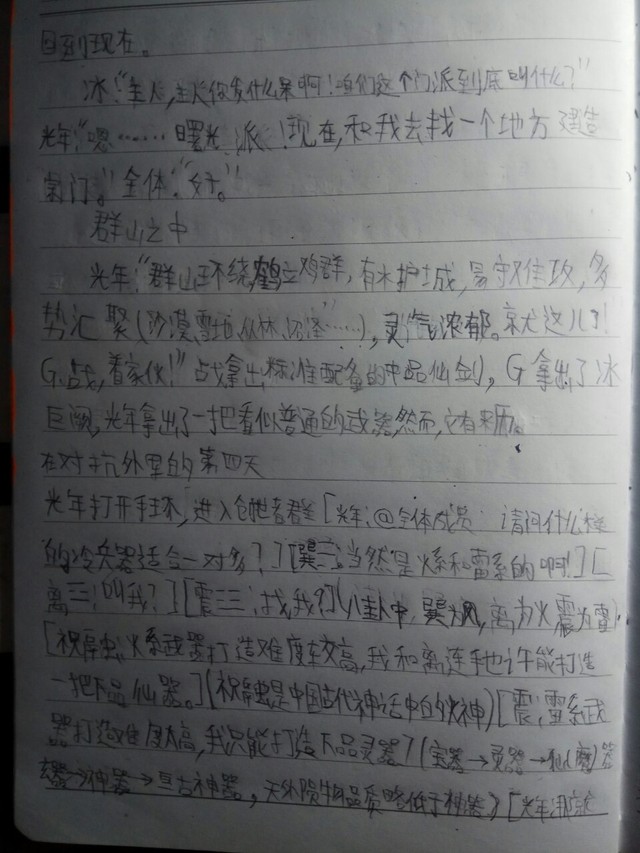 回到现在。
冰:"主人,主人你发什么呆啊!咱们这个门派到底叫什么?"
光年:"嗯……曙光派!现在,和我去找一个地方建造
宗门。"全体:"好。"
群山之中
光年:"群山环绕,鹤立鸡群,有水护城,易守难攻,多
势汇聚(沙漠,雪地,丛林,沼泽……),灵气浓郁。就这儿了!
G,战,看家伙!"战拿出标准配备的中品仙剑,G拿出了冰
巨阙,光年拿出了一把看似普通的武器,然而,它有来历。
在对抗外星的第四天
光年打开手环,进入创世者群[光年:@全体成员 请问什么样
的冷兵器适合一对多?][巽☴:当然是火系和雷系的啊!][
离☲:叫我?][震☳:找我?](八卦中,巽为风,离为火,震为雷)
[祝融:火系武器打造难度较高,我和离连手也许能打造
一把下品仙器。](祝融是中国古代神话中的火神)[震:雷系武
器打造难度太高,我只能打造下品灵器](宝器→灵器→仙(魔)器
→神器→亘古神器,天外陨物品质略低于神器)[光年:那